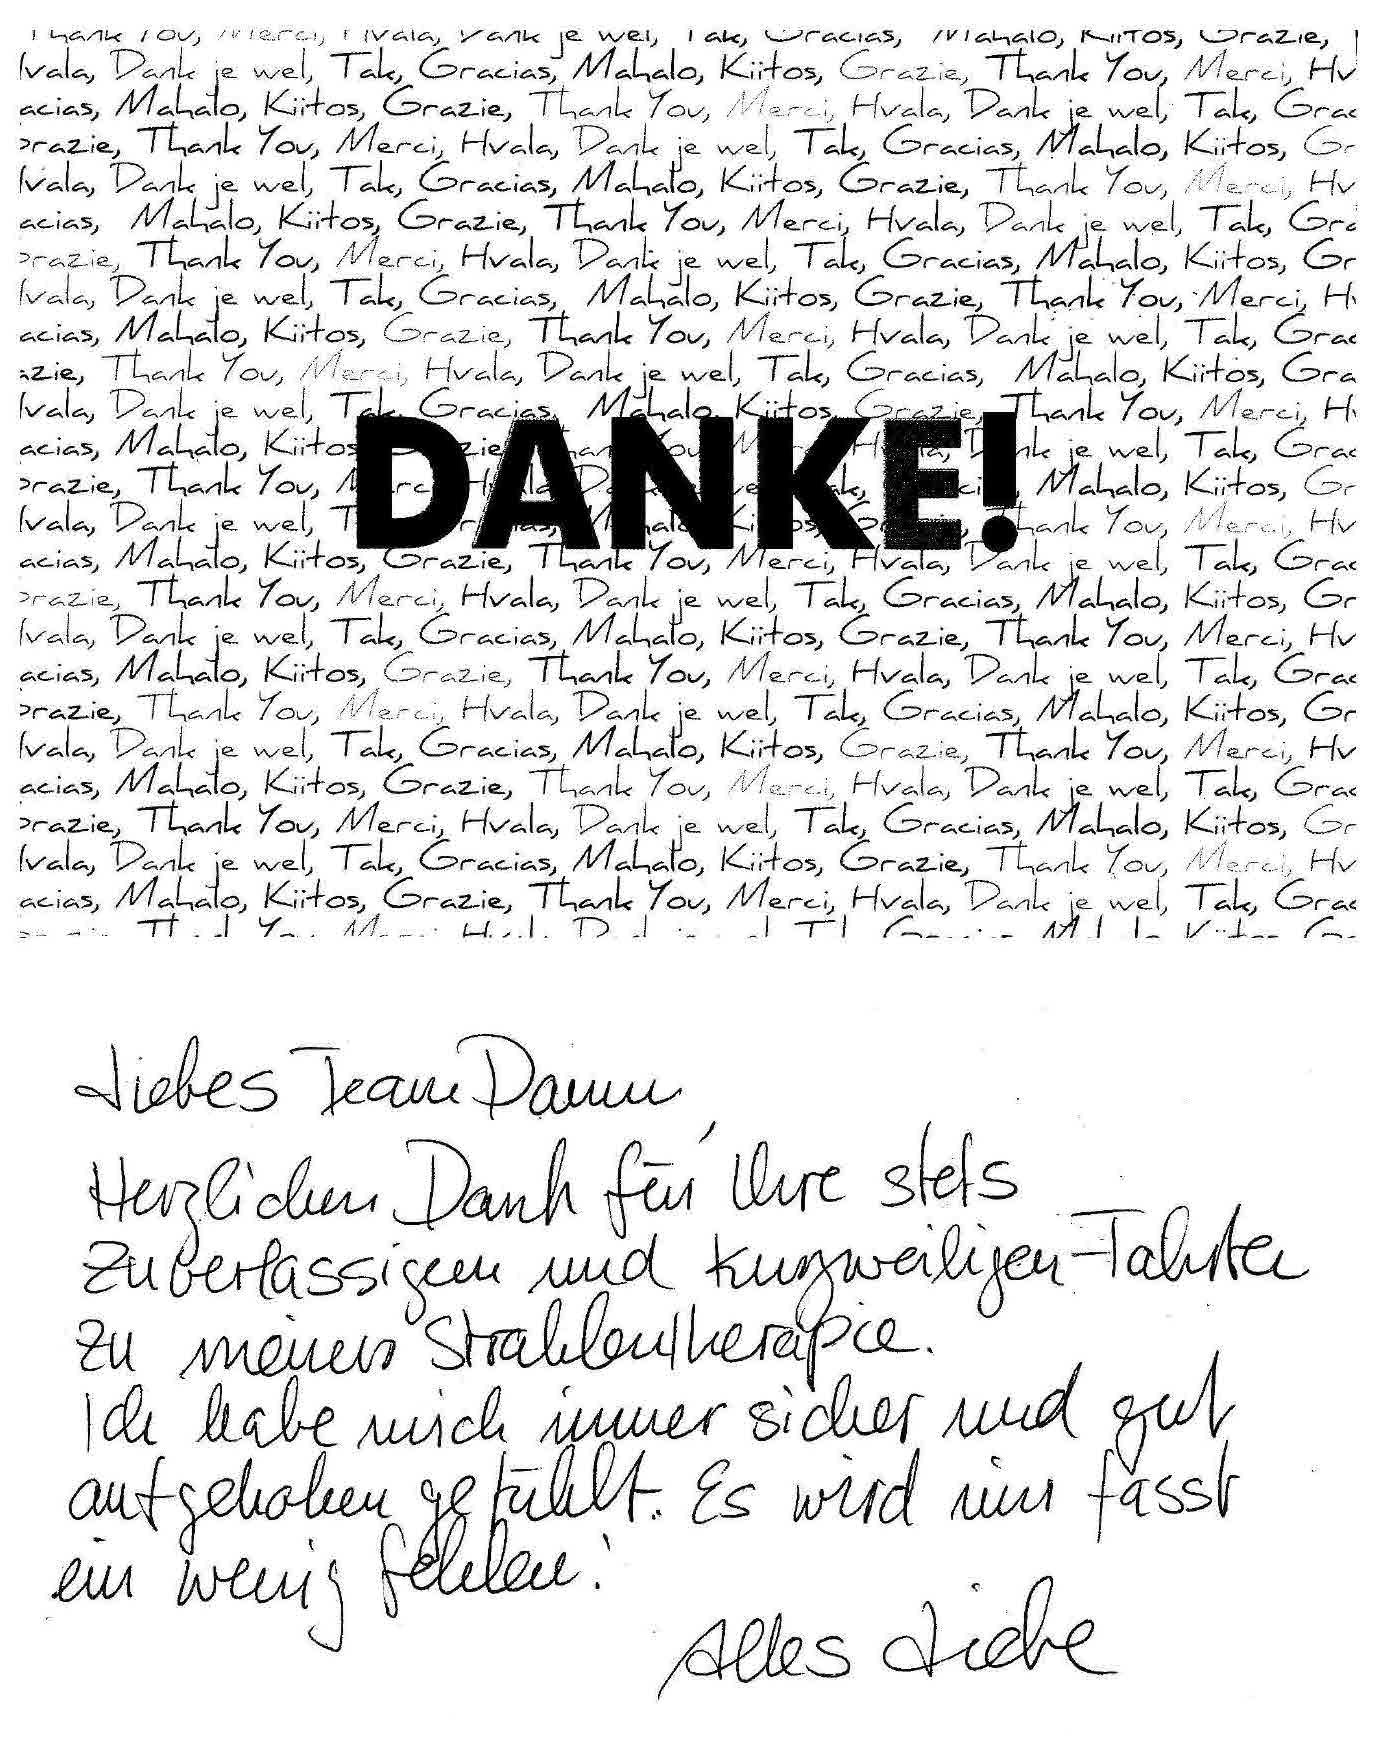 Thank You, Merci, Hvala, Dank je wel, Tak, Gracias, Mahalo, Kiitos, Grazie,
vala, Dank je wel, Tak, Gracias, Mahalo, Kiitos, Grazie, Thank You, Merci, Hv
acias, Mahalo, Kiitos, Grazie, Thank You, Merci, Hvala, Dank je wel, Tak, Grac
razie, Thank You, Merci, Hvala, Dank je wel, Tak, Gracias, Mahalo, Kiitos, Gr
vala, Dank je wel, Tak, Gracias, Mahalo, Kiitos, Grazie, Thank You, Merci, Hv
acias, Mahalo, Kiitos, Grazie, Thank You, Merci, Hvala, Dank je wel, Tak, Gra
razie, Thank You, Merci, Hvala, Dank je wel, Tak, Gracias, Mahalo, Kiitos, Gr
vala, Dank je wel, Tak, Gracias, Mahalo, Kiitos, Grazie, Thank You, Merci, H
acias, Mahalo, Kiitos, Grazie, Thank You, Merci, Hvala, Dank je wel, Tak, Grac
azie, Thank You, Merci, Hvala, Dank je wel, Tak, Gracias, Mahalo, Kiitos, Gra
vala, Dank je wel, Tak, Gracias, Mahalo, Kiitos, Grazie, Thank You, Merci, H
DANKE!
acias, Mahalo, Kiitos je wel, Tak, Grac
razie, Thank You, Mahalo, Kiitos, Gr
vala, Dank je wel, Thank You, Merci, Hv
acias, Mahalo, Kiitos, Grazie, Thank You, Merci, Hvala, Dank je wel, Tak, Grac
razie, Thank You, Merci, Hvala, Dank je wel, Tak, Gracias, Mahalo, Kiitos, Gr
vala, Dank je wel, Tak, Gracias, Mahalo, Kiitos, Grazie, Thank You, Merci, Hv
acias, Mahalo, Kiitos, Grazie, Thank You, Merci, Hvala, Dank je wel, Tak, Grac
razie, Thank You, Merci, Hvala, Dank je wel, Tak, Gracias, Mahalo, Kiitos, Gr
vala, Dank je wel, Tak, Gracias, Mahalo, Kiitos, Grazie, Thank You, Merci, Hv
acias, Mahalo, Kiitos, Grazie, Thank You, Merci, Hvala, Dank je wel, Tak, Grac
razie, Thank You, Merci, Hvala, Dank je wel, Tak, Gracias, Mahalo, Kiitos, Gr
vala, Dank je wel, Tak, Gracias, Mahalo, Kiitos, Grazie, Thank You, Merci, Hv
acias, Mahalo, Kiitos, Grazie, Thank You, Merci, Hvala, Dank je wel, Tak, Grac
Liebes Team Damm,
Herzlichen Dank für Ihre stets
zuverlassigen und kurzweiligen Fahrten
zu meiner Strahlentherapie.
Ich habe mich immer sicher und gut
aufgehoben gefühlt. Es wird mir fasst
ein wenig fehlen!
Alles Liebe